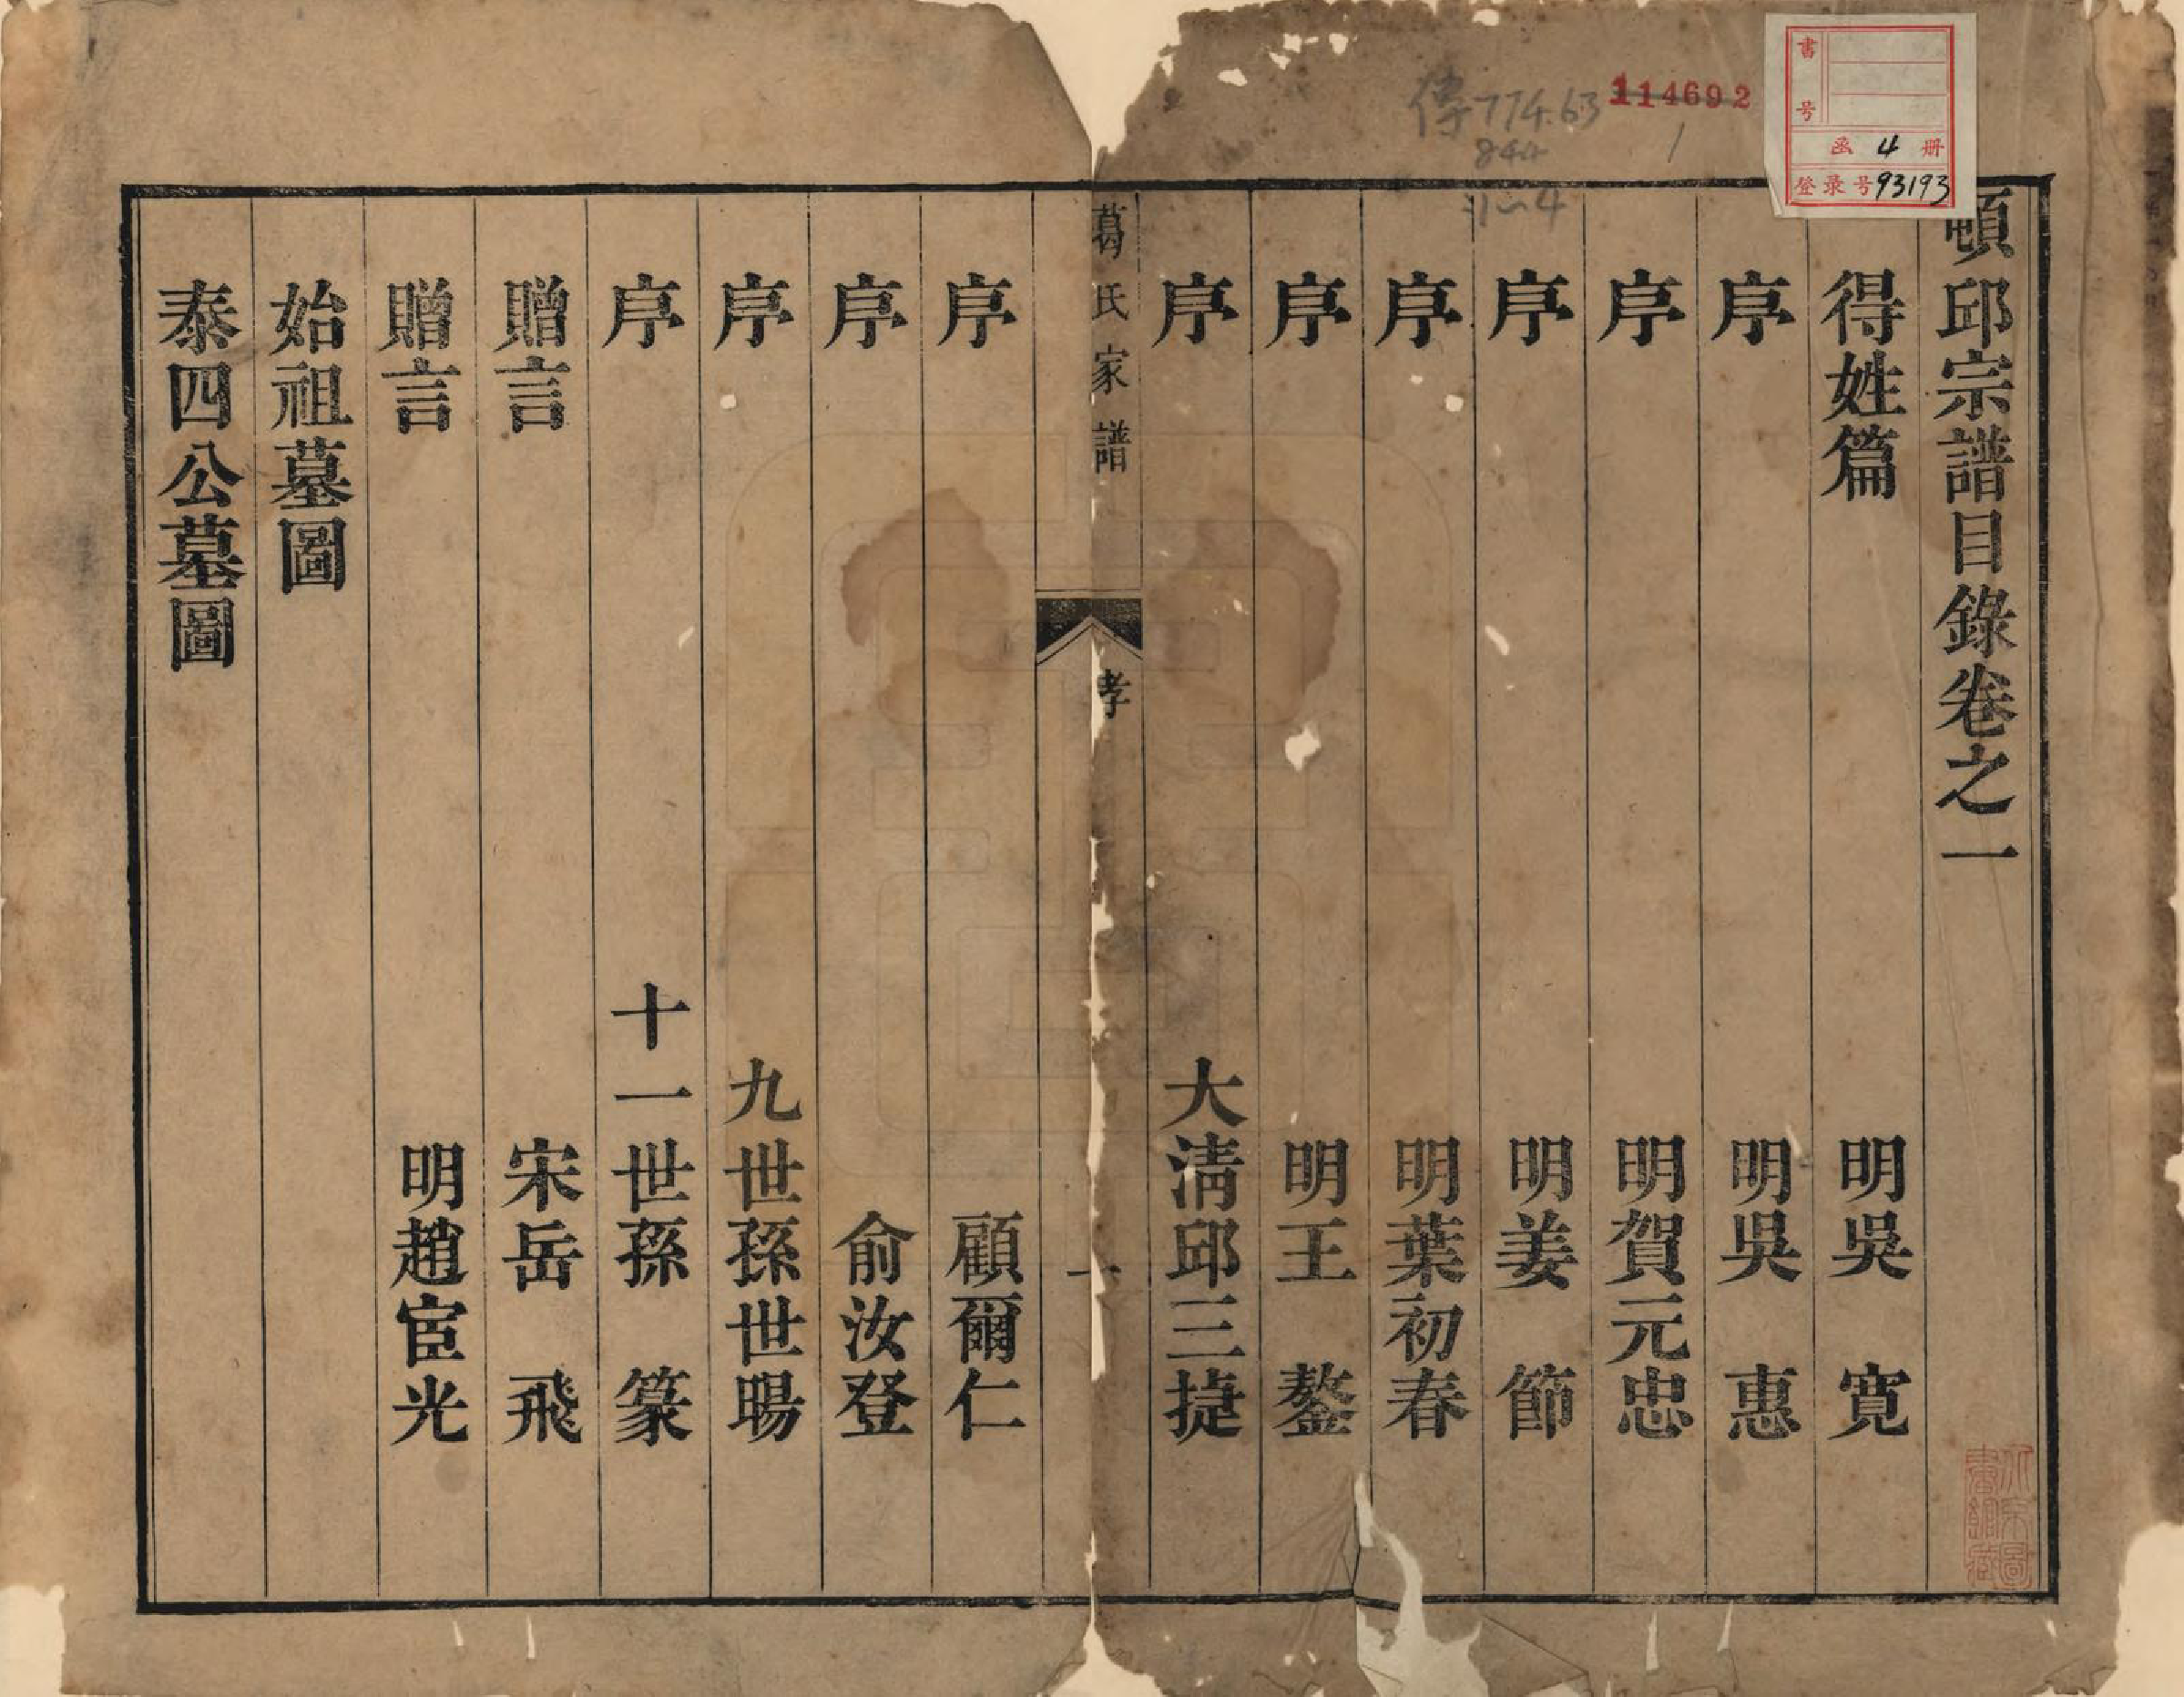 頓邱宗譜目錄卷之一
得姓篇 明吳 寬
序 明吳 惠
序 明賀元忠
序 明姜 節
序 明葉初春
序 明王 鏊
序 大淸邱三捷
葛氏家譜 孝 一
序 顧爾仁
序 俞汝登
序 九世孫世暘
序 十一世孫 篆
贈言 宋岳 飛
贈言 明趙宧光
始祖墓圖
泰四公墓圖
傳774.63
844
1
1~4
114692
書号
函 4 册
登录号93193